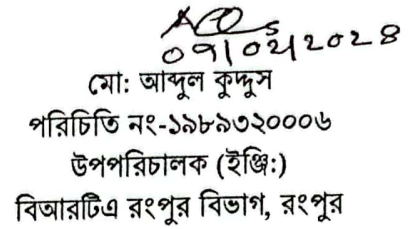 ০৭/০২/২০২৪
মো: আব্দুল কুদ্দুস
পরিচিতি নং-১৯৮৯৩২০০০৬
উপপরিচালক (ইঞ্জি:)
বিআরটিএ রংপুর বিভাগ, রংপুর